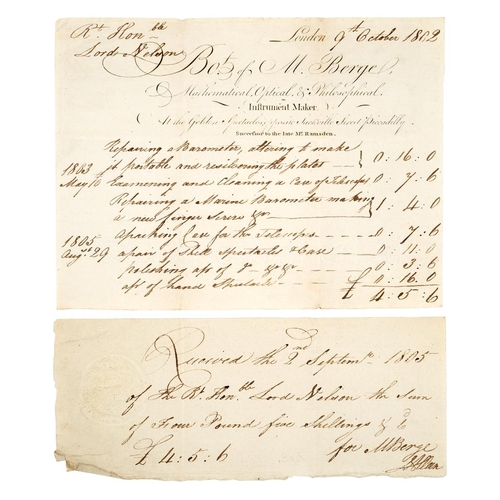 Rt. Honble
Lord Nelson
London 9th October 1802
Bot. of M. Berge,
Mathematical, Optical, & Philosophical
Instrument Maker.
At the Golden Spectacles, opposite Sackville Street Piccadilly.
Successor to the late Mr. Ramsden.
Repairing a Barometer, altering to make
it portable and resilvering the plates 0:16:0
1803
May 16 Examening and Cleaning a Case of Telescopes 0:7:6
Repairing a Marine Barometer making
a new finger Screw &c 1:4:0
1805 a packing Case for the Telescope 0:7:6
Augst 29 a pair of Shell Spectacles & Case 0:11:0
polishing a pr of 0:3:6
a pr of hand Spectacles 0:16:0
£ 4:5:6
Received the 2nd Septemr 1805
of The Rt. Honble Lord Nelson the sum
of Four Pound five Shillings & 6d
£ 4:5:6 for M Berge
Allan